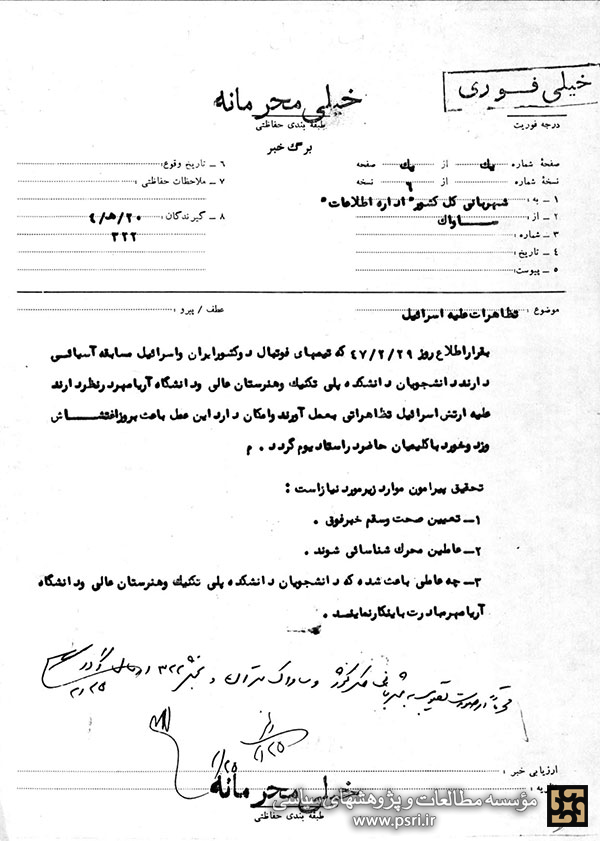 خیلی فوری
درجه فوریت
خیلی محرمانه
طبقه بندی حفاظتی
برگ خبر
صفحهٔ شماره یک از یک صفحه
نسخهٔ شماره از ۶ نسخه
۱ – به : شهربانی کل کشور "اداره اطلاعات"
۲ – از : ساواک
۳ – شماره :
۴ – تاریخ :
۵ – پیوست :
۶ – تاریخ وقوع :
۷ – ملاحظات حفاظتی :
۸ – گیرندگان : ۲۰/ه‍/۴
۳۲۲
موضوع : تظاهرات علیه اسرائیل
عطف / پیرو :
بقرار اطلاع روز ۴۷/۲/۲۹ که تیمهای فوتبال دو کشور ایران و اسرائیل مسابقه آسیائی
دارند دانشجویان دانشکده پلی تکنیک و هنرستان عالی و دانشگاه آریامهر در نظر دارند
علیه ارتش اسرائیل تظاهراتی بعمل آورند و امکان دارد این عمل باعث بروز اغتشاش
وزد و خورد با کلیمیان حاضر در استادیوم گردد . م
تحقیق پیرامون موارد زیر مورد نیاز است :
۱– تعیین صحت و سقم خبر فوق .
۲– عاملین محرک شناسائی شوند .
۳– چه عاملی باعث شده که دانشجویان دانشکده پلی تکنیک و هنرستان عالی و دانشگاه
آریامهر مبادرت باینکار نمایند .
در صورت تصویب به شهربانی کل کشور و ساواک تهران و بخش ۳۲۲
۲/۲۵
۲/۲۵
۲/۲۵
ارزیابی خبر :
خیلی محرمانه
طبقه بندی حفاظتی
مؤسسه مطالعات و پژوهشهای سیاسی
www.psri.ir